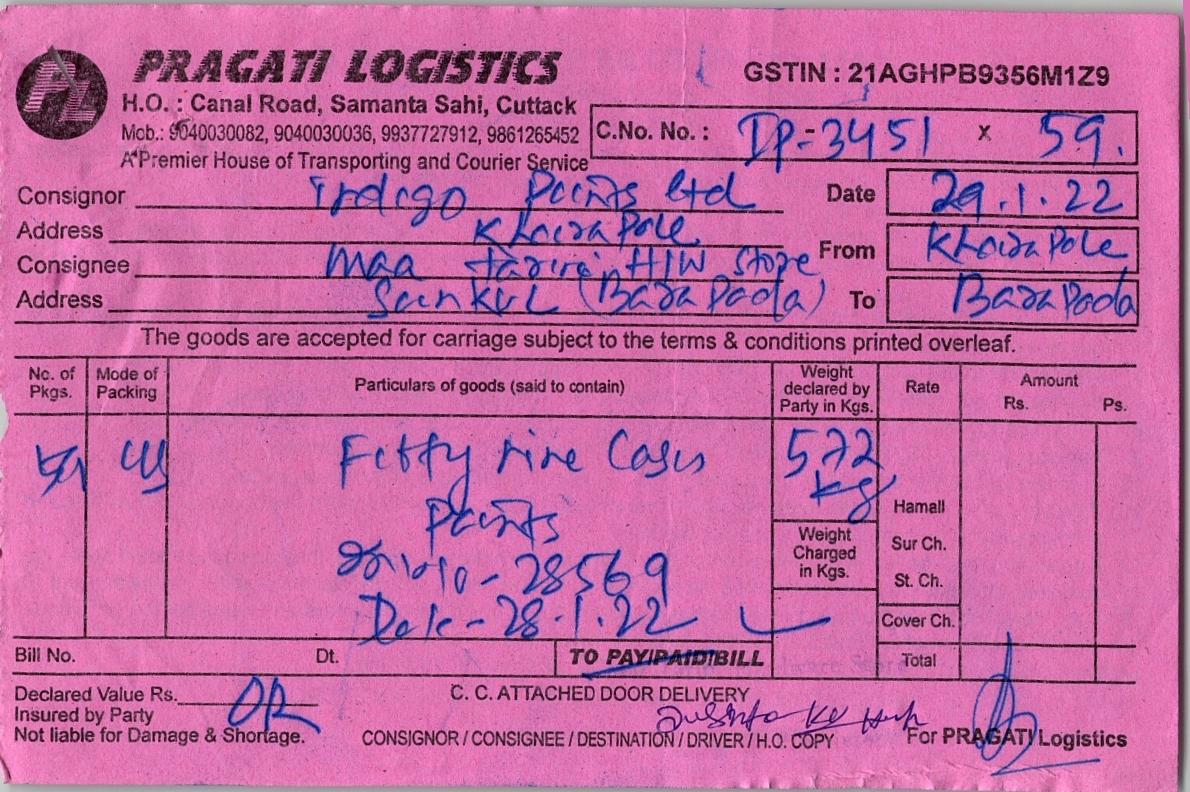 PRAGATI LOGISTICS
H.O. : Canal Road, Samanta Sahi, Cuttack
Mob.: 9040030082, 9040030036, 9937727912, 9861265452
A Premier House of Transporting and Courier Service
GSTIN : 21AGHPB9356M1Z9
C.No. No. : DP-3451 x 59.
Consignor Indigo Paints Ltd
Date 29.1.22
Address Khairapole
From Khairapole
Consignee Maa Tarini H/W Store
Address Sankul (Barapada)
To Barapada
The goods are accepted for carriage subject to the terms & conditions printed overleaf.
No. of Pkgs. Mode of Packing Particulars of goods (said to contain) Weight declared by Party in Kgs. Rate Amount Rs. Ps.
59 Fifty nine Cases 572 kg
Paints
28569
Date - 28-1.22
Hamali
Weight Charged in Kgs.
Sur Ch.
St. Ch.
Cover Ch.
Bill No. Dt. TO PAY/PAID/BILL Total
Declared Value Rs.
C. C. ATTACHED DOOR DELIVERY
Insured by Party OR
Not liable for Damage & Shortage.
CONSIGNOR / CONSIGNEE / DESTINATION / DRIVER / H.O. COPY
For PRAGATI Logistics